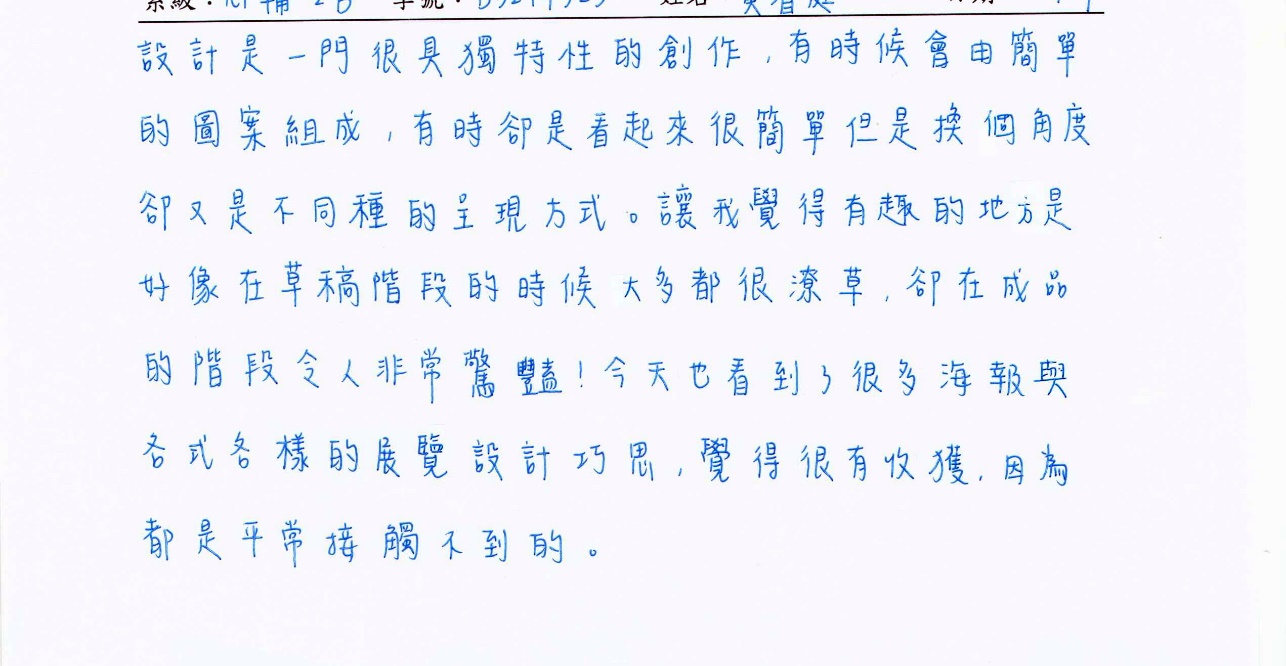 設計是一門很具獨特性的創作，有時候會由簡單
的圖案組成，有時卻是看起來很簡單但是換個角度
卻又是不同種的呈現方式。讓我覺得有趣的地方是
好像在草稿階段的時候大多都很潦草，卻在成品
的階段令人非常驚豔！今天也看到了很多海報與
各式各樣的展覽設計巧思，覺得很有收獲，因為
都是平常接觸不到的。